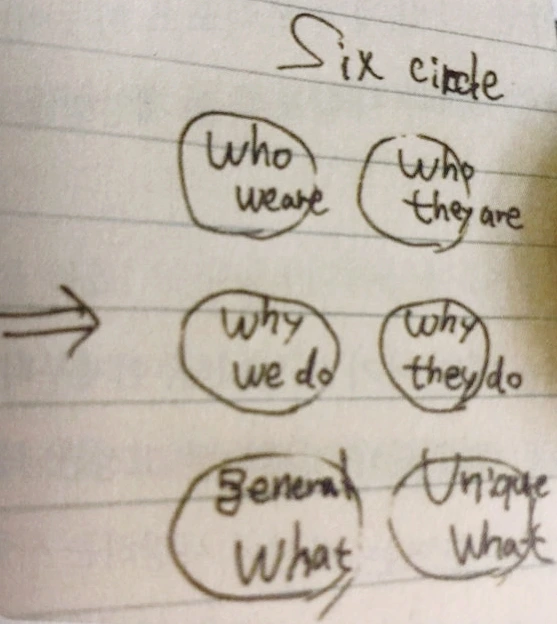 Six circle
Who
we are
Who
they are
Why
we do
Why
they do
General
What
Unique
What